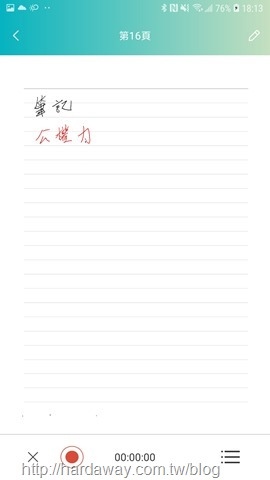 76% 18:13
第16頁
筆記
公權力
00:00:00
http://hardaway.com.tw/blog